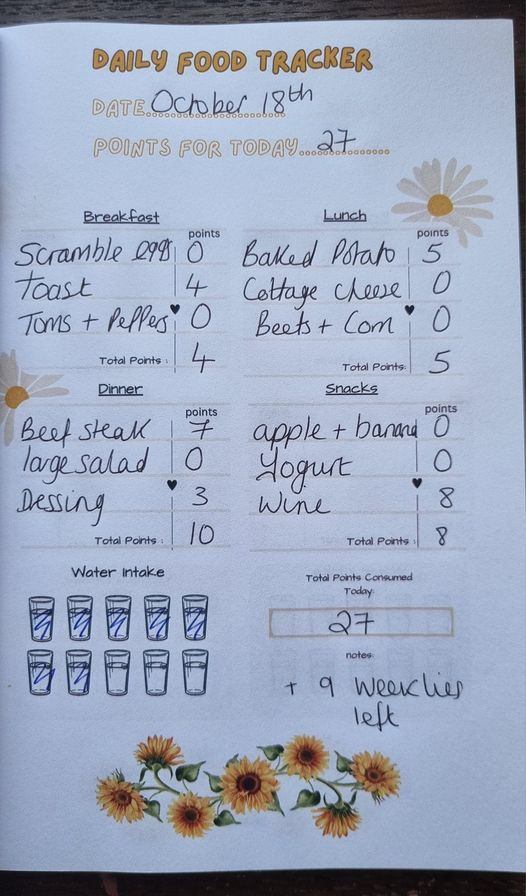 DAILY FOOD TRACKER
DATE October 18th
POINTS FOR TODAY 27
Breakfast
points
Scramble eggs 0
Toast 4
Toms + Peppers 0
Total Points : 4
Lunch
points
Baked Potato 5
Cottage cheese 0
Beets + Corn 0
Total Points: 5
Dinner
points
Beef steak 7
large salad 0
Dessing 3
Total Points : 10
Snacks
points
apple + banana 0
Yogurt 0
Wine 8
Total Points : 8
Water Intake
Total Points Consumed
Today:
27
notes:
+ 9 weeklies
left